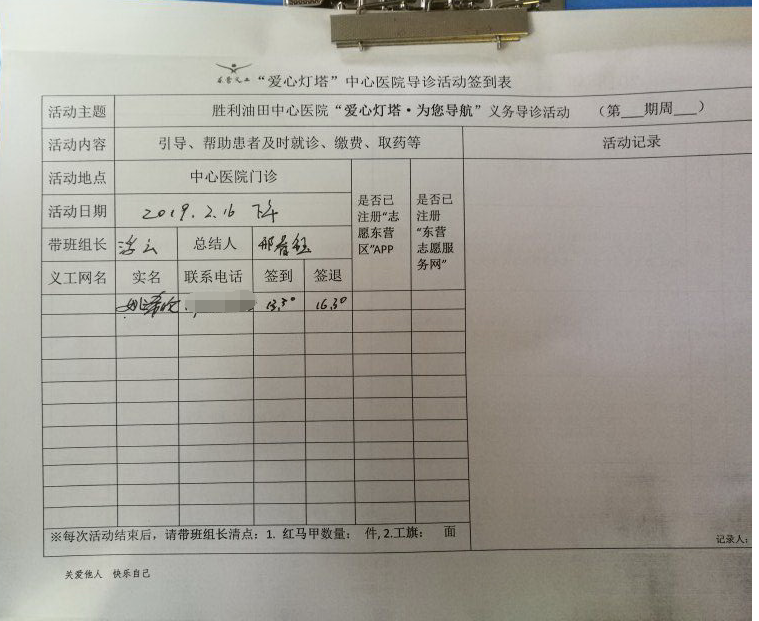 东营义工 “爱心灯塔”中心医院导诊活动签到表
活动主题 胜利油田中心医院“爱心灯塔·为您导航”义务导诊活动 （第___期周___）
活动内容 引导、帮助患者及时就诊、缴费、取药等 活动记录
活动地点 中心医院门诊
活动日期 2019.2.16 下午
是否已注册“志愿东营区”APP
是否已注册“东营志愿服务网”
带班组长 总结人
义工网名 实名 联系电话 签到 签退
13.30 16.30
※每次活动结束后，请带班组长清点：1. 红马甲数量： 件, 2.工旗： 面
记录人：
关爱他人 快乐自己